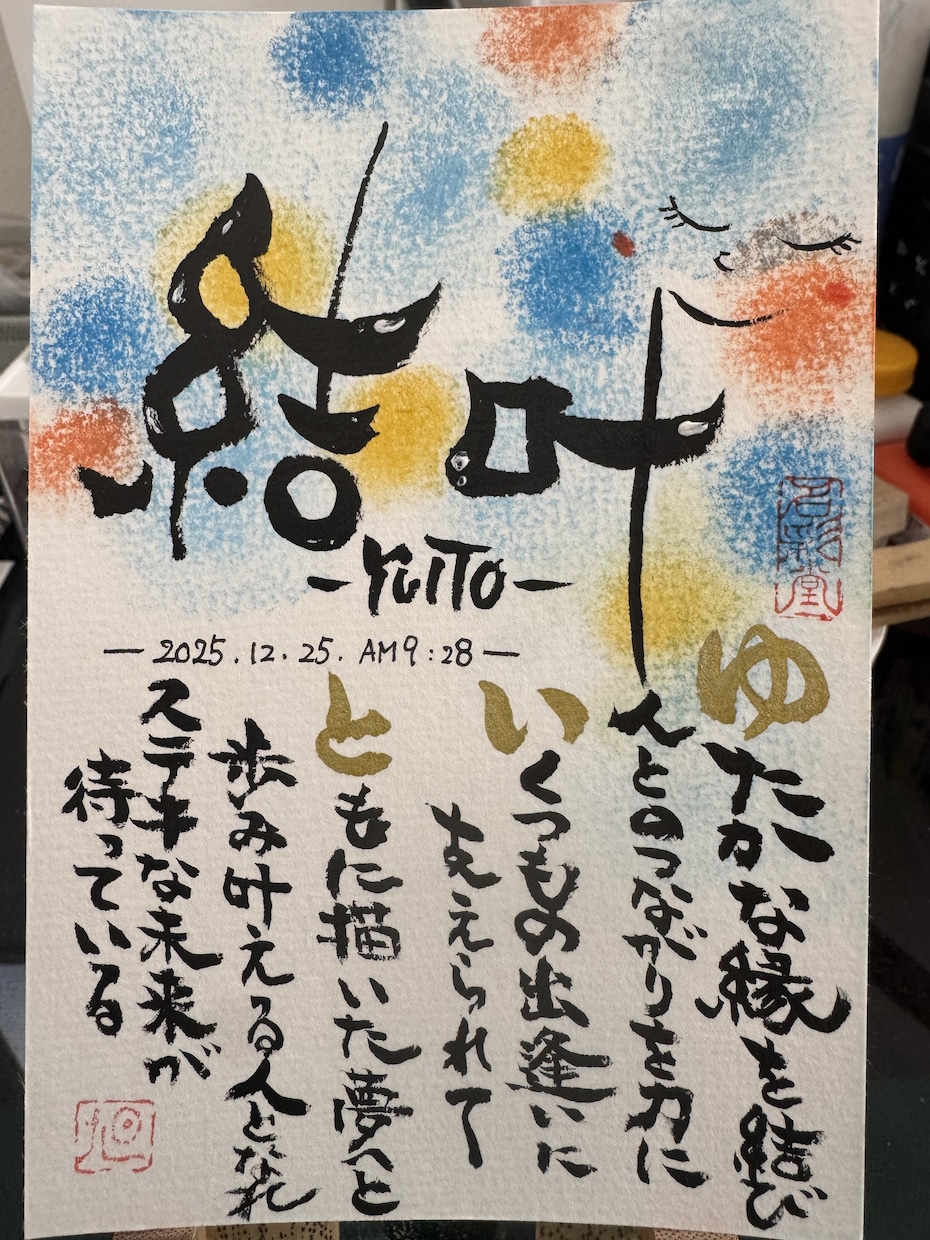 結叶
-YUITO-
-2025.12.25.AM9:28-
ゆたかな縁を結び
人とのつながりを力に
いくつもの出逢いに
支えられて
ともに描いた夢へと
歩み叶える人となれ
ステキな未来が
待っている
名彩堂